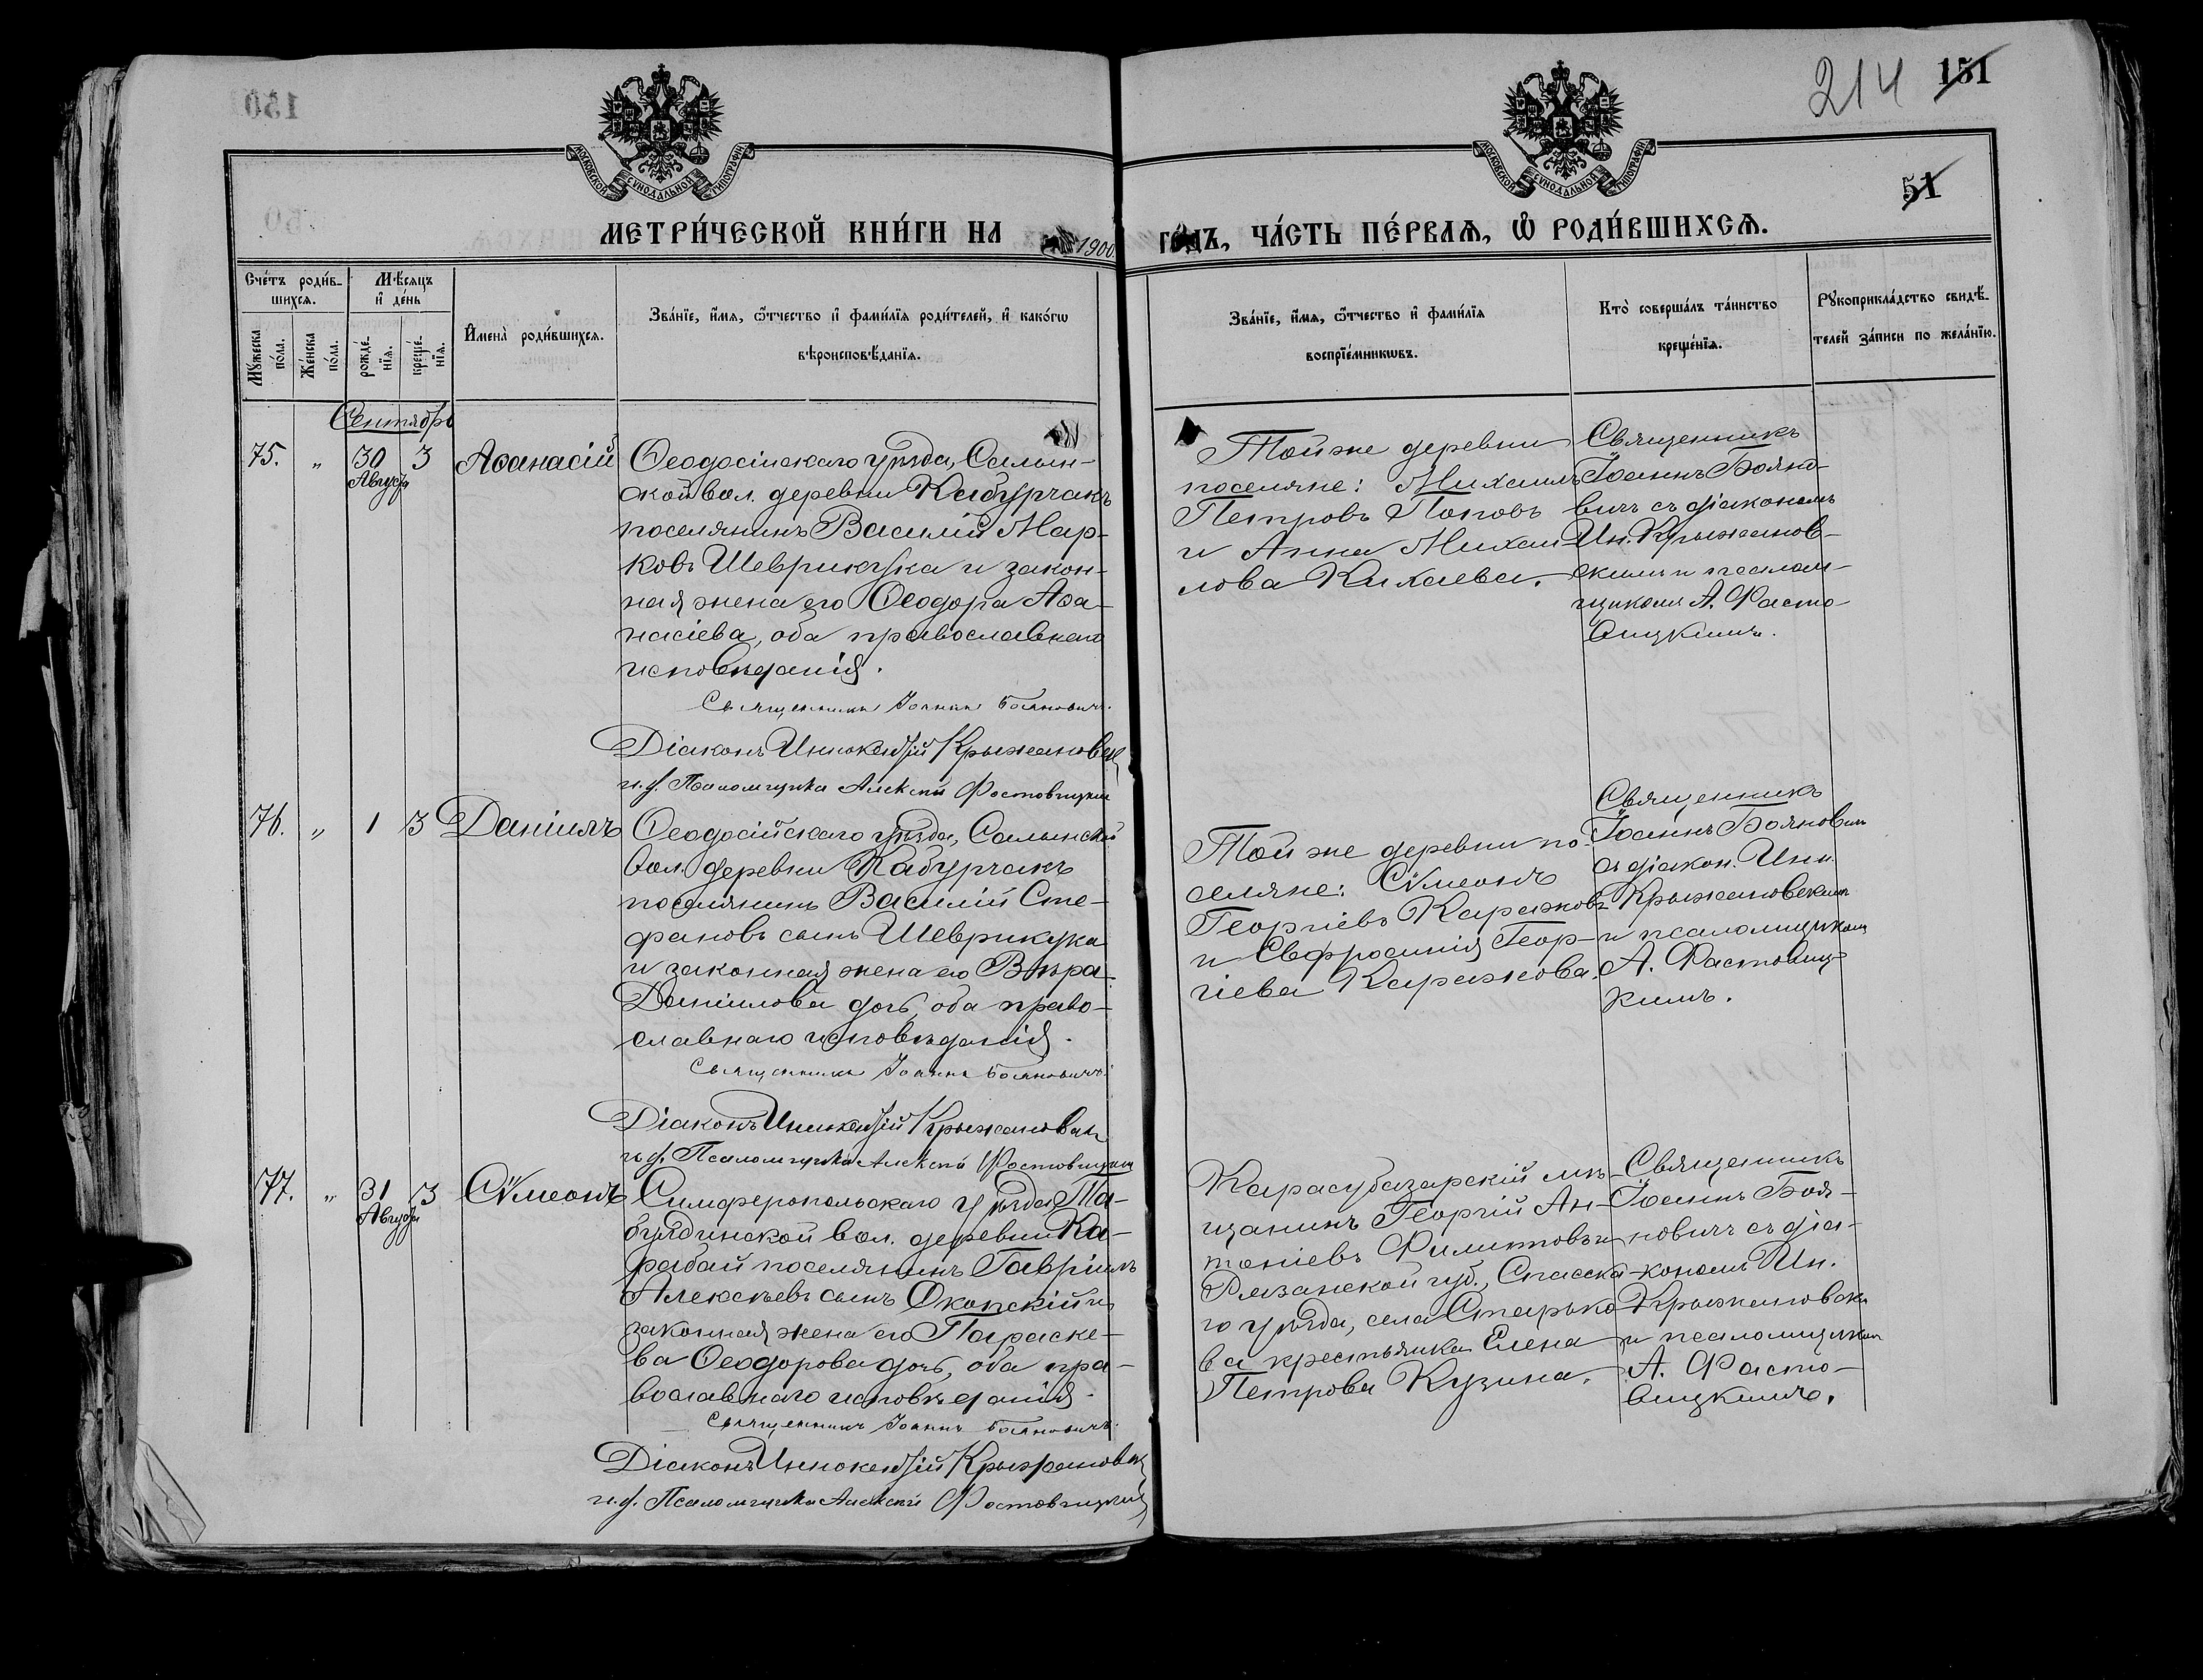 214 151
51
МОСКОВСКОЙ СѴНОДАЛЬНОЙ ТИПОГРАФІИ
МОСКОВСКОЙ СѴНОДАЛЬНОЙ ТИПОГРАФІИ
МЕТРИ́ЧЕСКОЙ КНИ́ГИ НА 1900
ГО́ДЪ, ЧА́СТЬ ПЕ́РВАѦ, Ѡ҆ РОДИ́ВШИХСѦ.
Сче́тъ роди́в-
шихсѧ.
Мѣ́сѧцъ
и҆ де́нь
Мꙋ́жеска
по́ла.
Же́нска
по́ла.
рожде́-
нїѧ.
креще́-
нїѧ.
И҆мена̀ роди́вшихсѧ.
Зва́нїе, и҆́мѧ, ѻ҆́тчество и҆ фами́лїѧ роди́телей, и҆ како́гѡ
вѣроисповѣ́данїѧ.
Зва́нїе, и҆́мѧ, ѻ҆́тчество и҆ фами́лїѧ
воспрїе́мникѡвъ.
Кто̀ соверша́лъ та́инство
креще́нїѧ.
Рꙋкоприкла́дство свидѣ́-
телей за́писи по жела́нїю.
Сентябрь
75. „ 30 Августа 3 Аѳанасій
Ѳеодосійскаго уѣзда, Салын-
ской вол. деревни Кабурчакъ
поселянинъ Василій Мар-
ковъ Шеврикука и закон-
ная жена его Ѳеодора Аѳа-
насіева, оба православнаго
исповѣданія.
Священникъ Іоаннъ Бояновичъ.
Діаконъ Иннокентій Крыжановскій
и. д. Псаломщика Алексѣй Фастовицкій
Той же деревни
поселяне: Михаилъ
Петровъ Поповъ
и Анна Михаи-
лова Кихаева.
Священникъ
Іоаннъ Бояно-
вичъ съ діакономъ
Ин. Крыжанов-
скимъ и псалом-
щикомъ А. Фасто-
вицкимъ.
76. „ 1 3 Даніилъ
Ѳеодосійскаго уѣзда, Салынской
вол. деревни Кабурчакъ
поселянинъ Василій Сте-
фановъ сынъ Шеврикука
и законная жена его Вѣра
Даніилова дочь, оба право-
славнаго исповѣданія.
Священникъ Іоаннъ Бояновичъ.
Діаконъ Иннокентій Крыжановскій
и. д. Псаломщика Алексѣй Фастовицкій
Той же деревни по-
селяне: Сѵмеонъ
Георгіевъ Каражовъ
и Евфросинія Геор-
гіева Каражова.
Священникъ
Іоаннъ Бояновичъ
съ діакон. Инн.
Крыжановскимъ
и псаломщикомъ
А. Фастовиц-
кимъ.
77. „ 31 Августа 3 Сѵмеонъ
Симферопольскаго уѣзда, Та-
булдинской вол. деревни Ка-
рабай поселянинъ Гавріилъ
Алексѣевъ сынъ Окопскій и
законная жена его Параске-
ва Ѳеодорова дочь, оба пра-
вославнаго исповѣданія.
Священникъ Іоаннъ Бояновичъ.
Діаконъ Иннокентій Крыжановскій
и. д. Псаломщика Алексѣй Фастовицкій
Карасубазарскій мѣ-
щанинъ Георгій Ан-
тоніевъ Филиповъ и
Рязанской губ., Спасска-
го уѣзда, села Старько-
ва крестьянка Елена
Петрова Кузина.
Священникъ
Іоаннъ Боя-
новичъ съ діа-
кономъ Ин.
Крыжановски
и псаломщиком
А. Фасто-
вицкимъ.